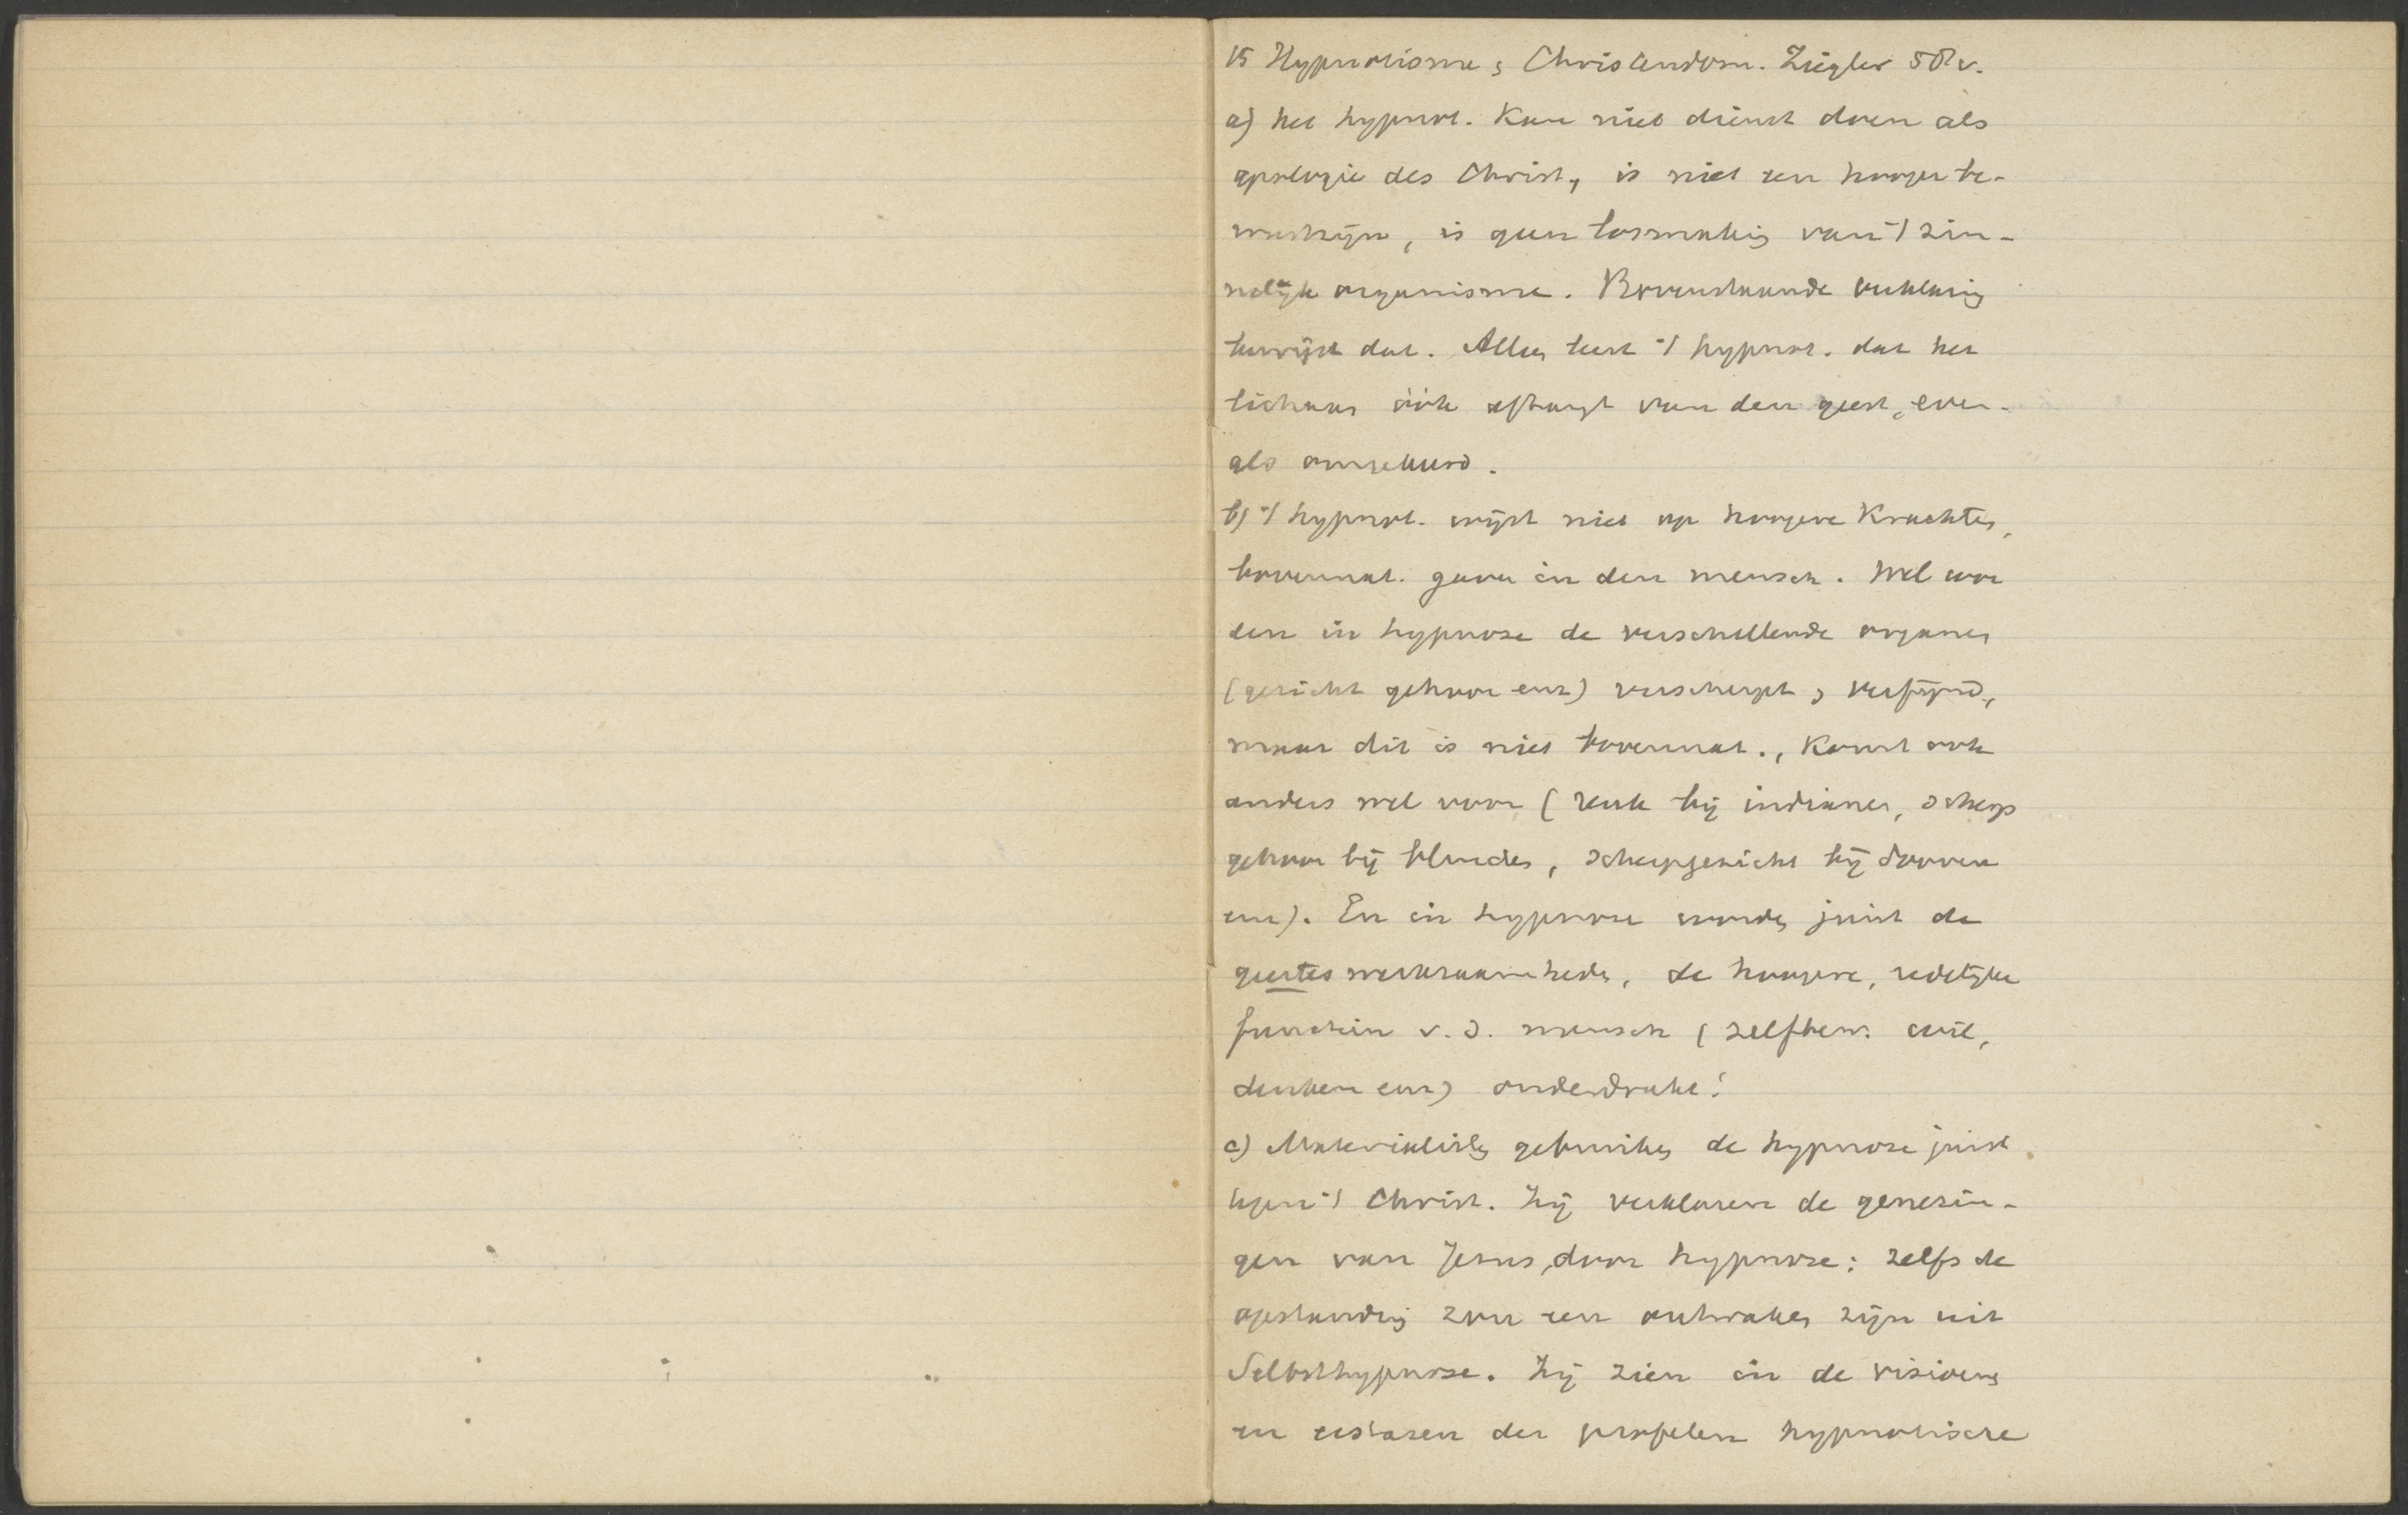 15 Hypnotisme en Christendom. Ziegler 58v.
a) het hypnot. kan niet dienst doen als
apologie des Christ., is niet een hooger be-
wustzijn, is geen losmaking van 't zin-
nelijk organisme. Bovenstaande verklaring
bewijst dat. Alleen leert 't hypnot. dat het
lichaam óók afhangt van den geest, even-
als omgekeerd.
b) 't hypnot. wijst niet op hoogere krachten,
bovennat. gaven in den mensch. Wel wor
den in hypnose de verschillende organen
(gezicht gehoor enz) verscherpt en verfijnd,
maar dit is niet bovennat., komt ook
anders wel voor (reuk bij indianen, scherp
gehoor bij blinden, scherp gezicht bij dooven
enz). En in hypnose worden juist de
geesteswerkzaamheden, de hoogere, redelijke
functiën v. d. mensch (zelfbew. wil,
denken enz) onderdrukt!
c) Materialisten gebruiken de hypnose juist
tegen 't Christ. Zij verklaren de genezin-
gen van Jezus door hypnose; zelfs de
opstanding zou een ontwaken zijn uit
Selbsthypnose. Zij zien in de visioenen
en extasen der profeten hypnotische